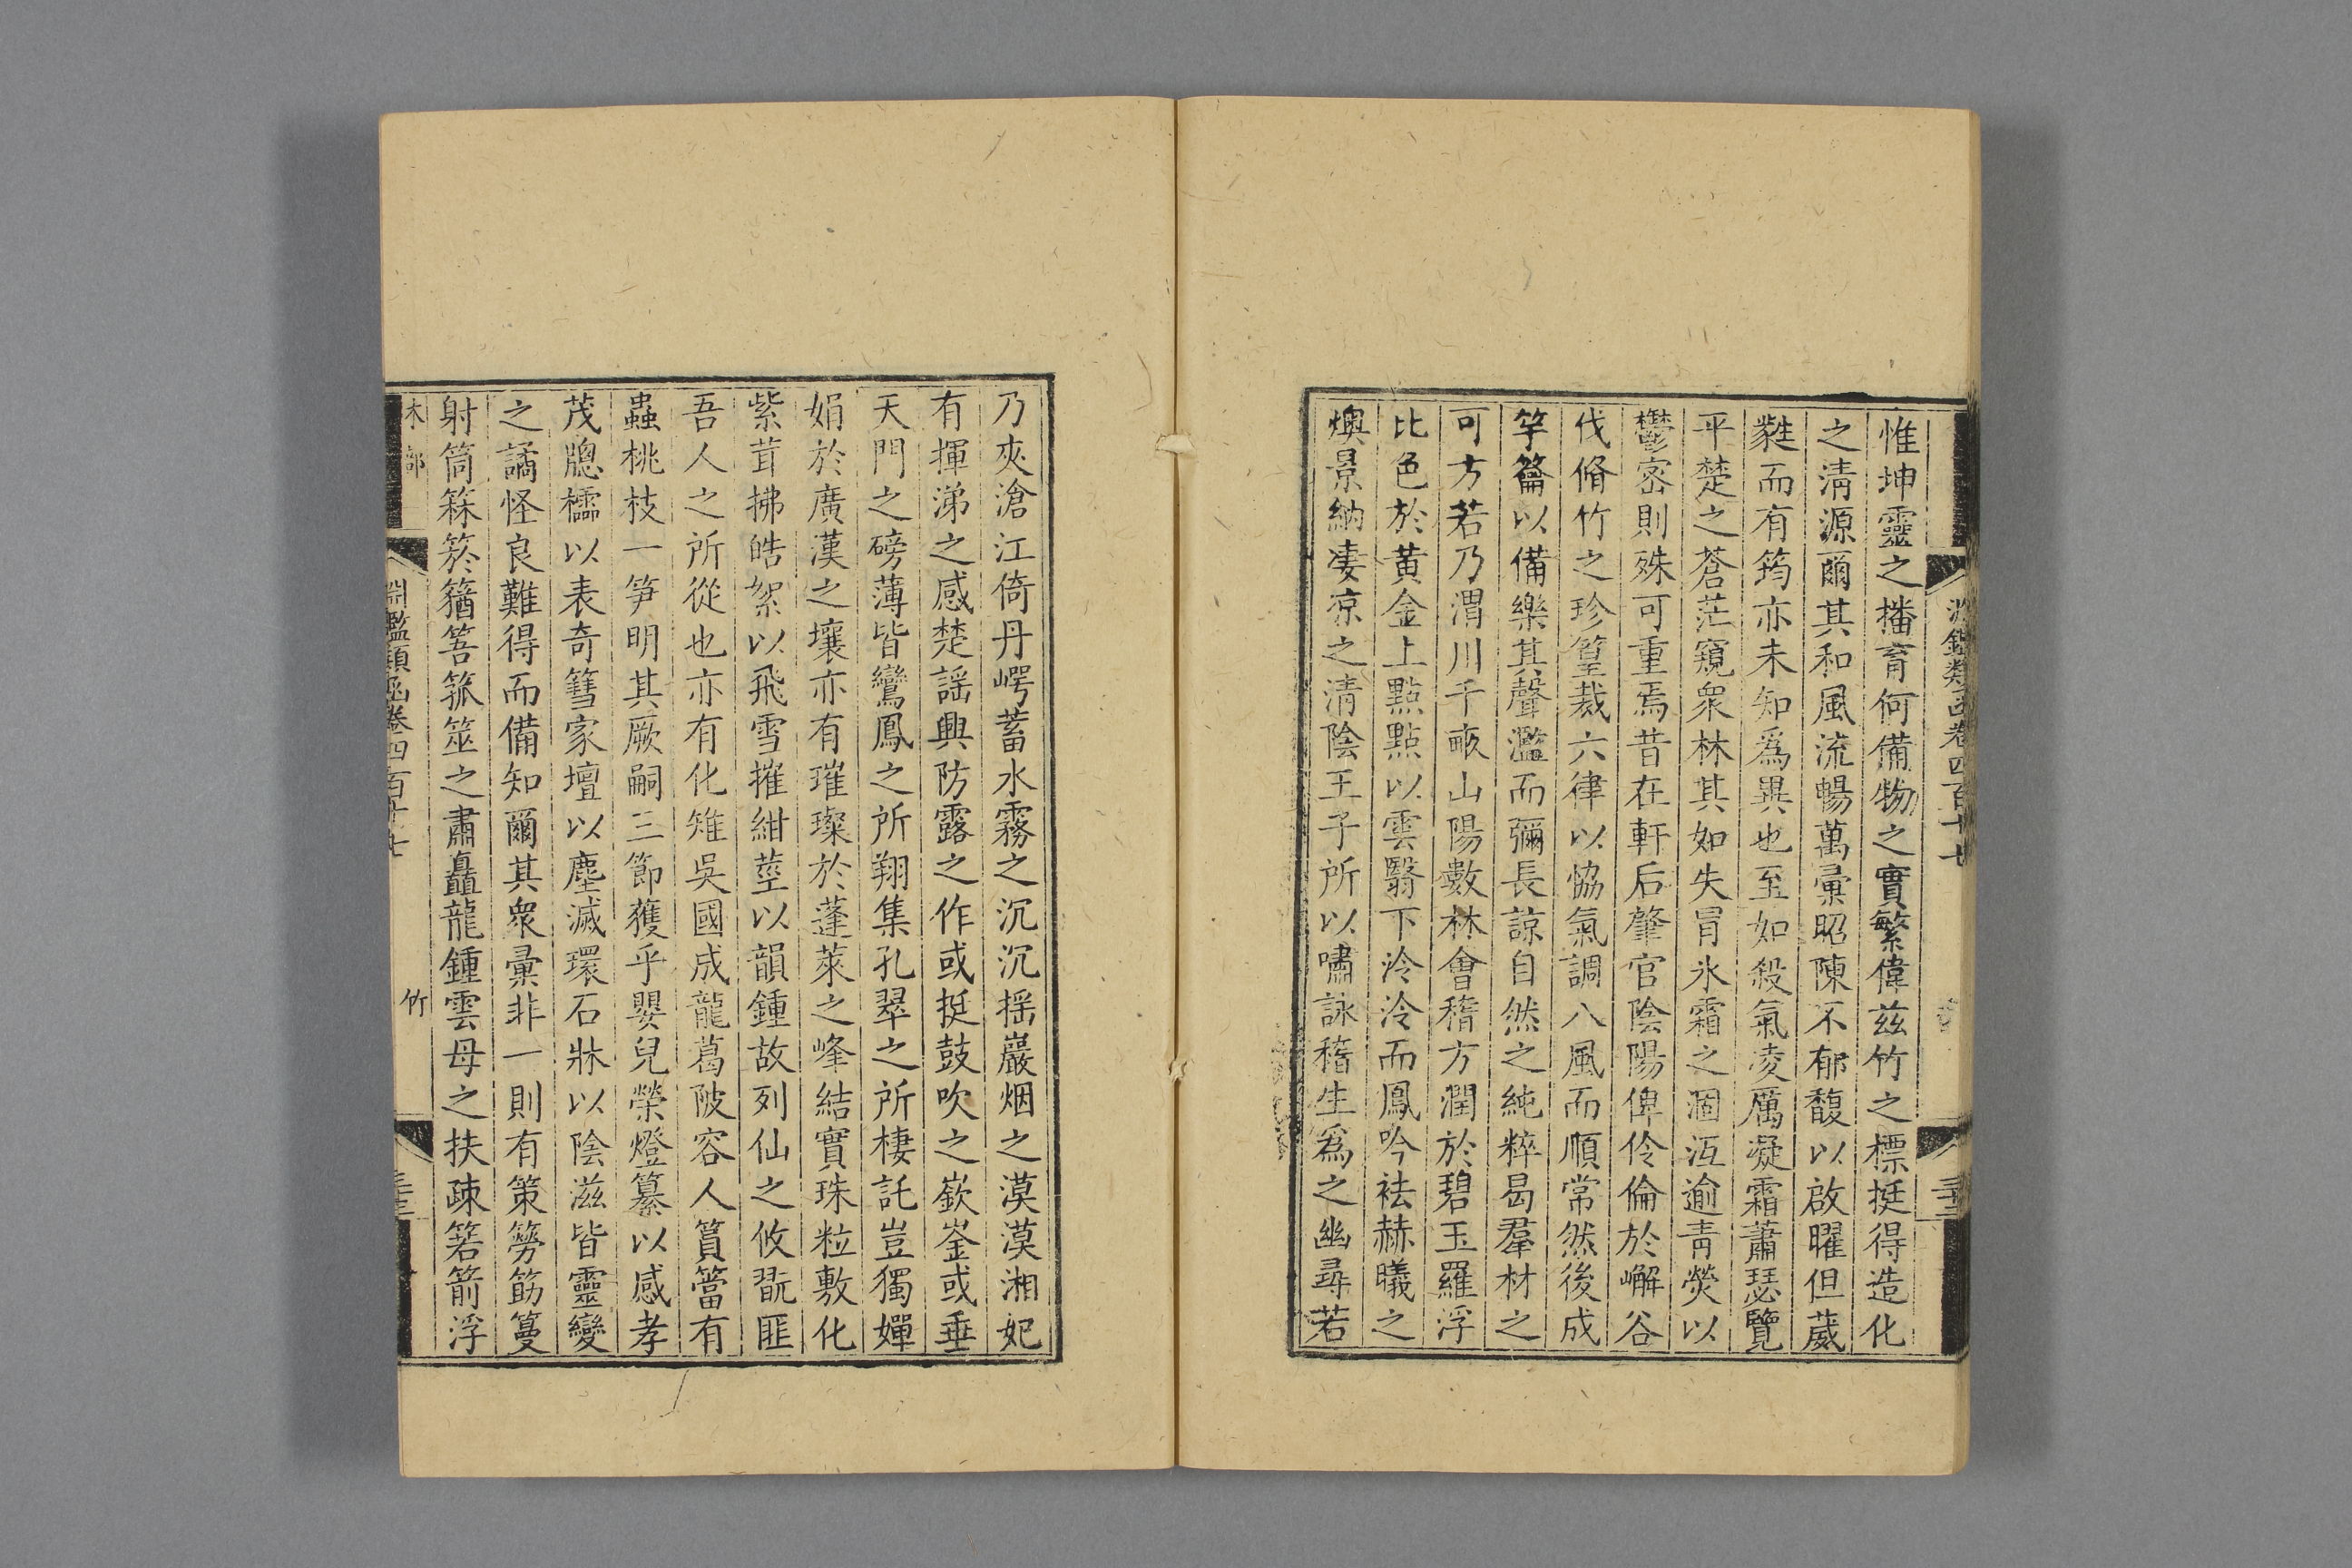 淵鑑類函卷四百十七
惟坤靈之播育何備物之實繁偉兹竹之標挺得造化
之清源爾其和風流暢萬彙昭陳不郁馥以啟曜但葳
蕤而有筠亦未知爲異也至如殺氣凌厲凝霜蕭瑟覽
平楚之蒼茫窺衆林其如失冐氷霜之涸沍逾青熒以
鬱密則殊可重焉昔在軒后肇官陰陽俾伶倫於嶰谷
伐脩竹之珍篁裁六律以恊氣調八風而順常然後成
竽籥以備樂其聲濫而彌長諒自然之純粹曷羣材之
可方若乃渭川千畞山陽數林會稽方潤於碧玉羅浮
比色於黄金上點點以雲翳下泠泠而鳳吟袪赫曦之
燠景納凄凉之清陰王子所以嘯詠稽生爲之幽尋若
乃夾滄江倚丹崿蓄水霧之沉沉揺巖烟之漠漠湘妃
有揮涕之感楚謡興防露之作或挺鼓吹之嶔崟或垂
天門之磅薄皆鸞鳳之所翔集孔翠之所棲託豈獨嬋
娟於廣漢之壤亦有璀璨於蓬萊之峰結實珠粒敷化
紫茸拂皓絮以飛雪摧紺莖以韻鍾故列仙之攸翫匪
吾人之所從也亦有化雉吳國成龍葛陂容人篔簹有
蟲桃枝一笋明其厥嗣三節獲乎嬰兒榮燈纂以感孝
茂牎櫺以表奇篲家壇以塵滅環石牀以陰滋皆靈變
之譎怪良難得而備知爾其衆彙非一則有策簩筯䈵
射筒箖箊䉋筶箛筮之肅矗龍鍾雲母之扶疎箬箭浮
木部
淵鑑類函卷四百十七
竹